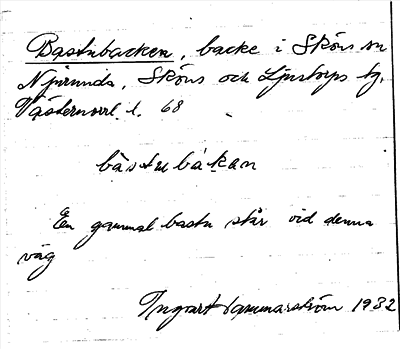 Bastubacken, backe i Sköns sn
Njurunda, Sköns och Ljustorps tg,
Västernorrl. l. 68
bàstubàkan
En gammal bastu står vid denna
väg
Ingvart Hammarström 1932